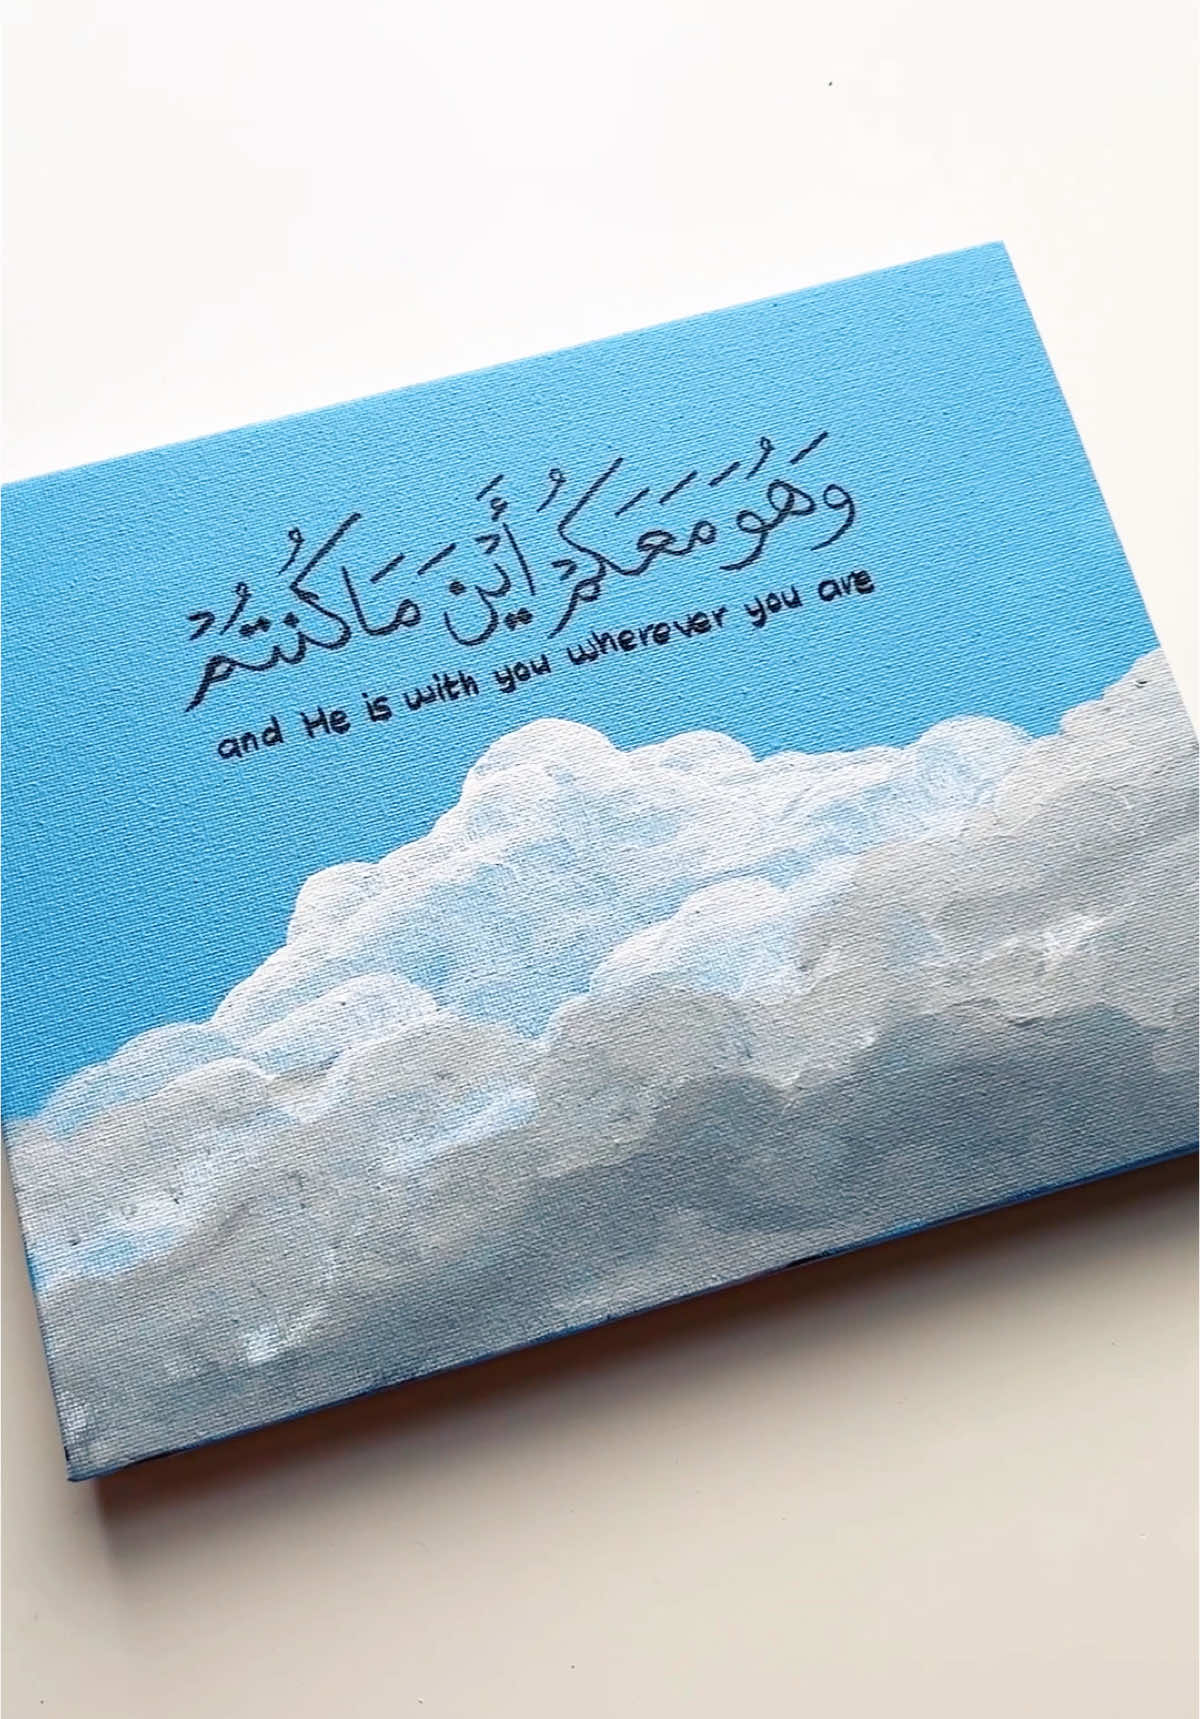 وَهُوَ مَعَكُمْ أَيْنَ مَا كُنتُمْ
and He is with you wherever you are